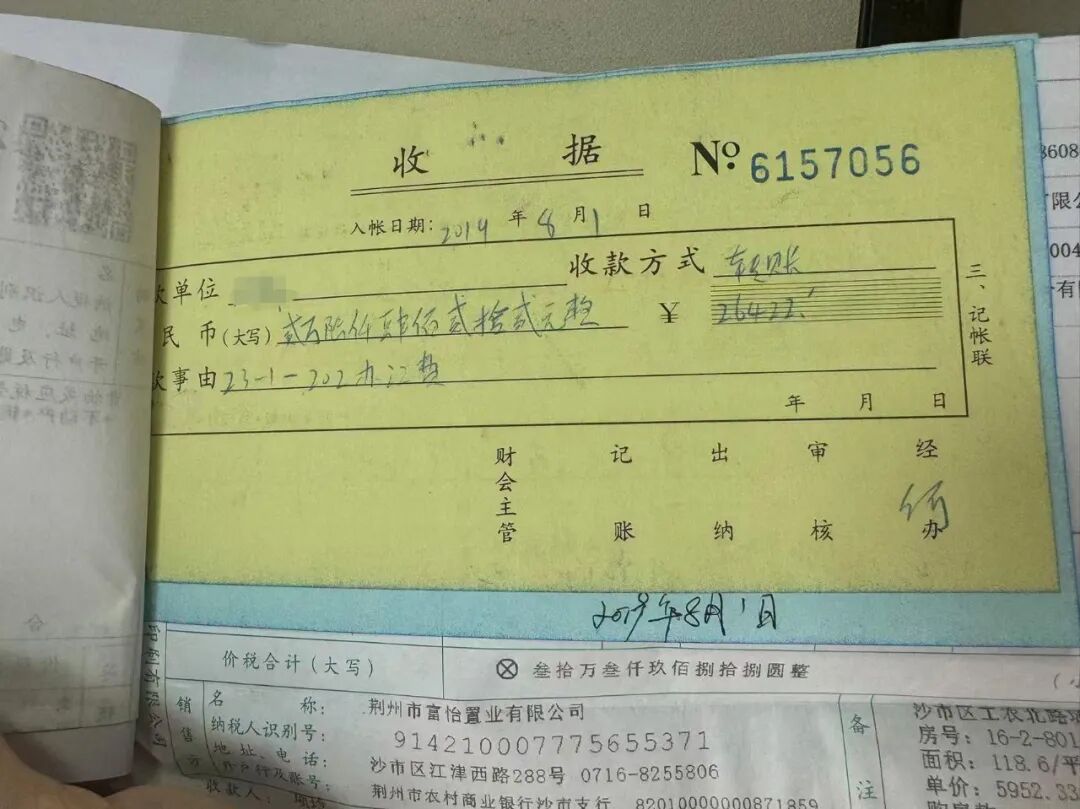 收 据 Nº 6157056
入帐日期: 2019 年 8 月 1 日
款单位 收款方式 转账
民 币 (大写) 贰万陆仟肆佰贰拾贰元整 ¥ 26422
款事由 23-1-202办证费
年 月 日
三、记帐联
财会主管 记账 出纳 审核 经办
2019年8月1日
价税合计(大写) ⊗ 叁拾万叁仟玖佰捌拾捌圆整
销售方
名 称: 荆州市富怡置业有限公司
纳税人识别号: 914210007775655371
地址、电话: 沙市区江津西路288号 0716-8255806
开户行及账号: 荆州市农村商业银行沙市支行 82010000000871859
收款人:
备注
沙市区工农北路
房号: 16-2-801
面积: 118.6/平
单价: 5952.33